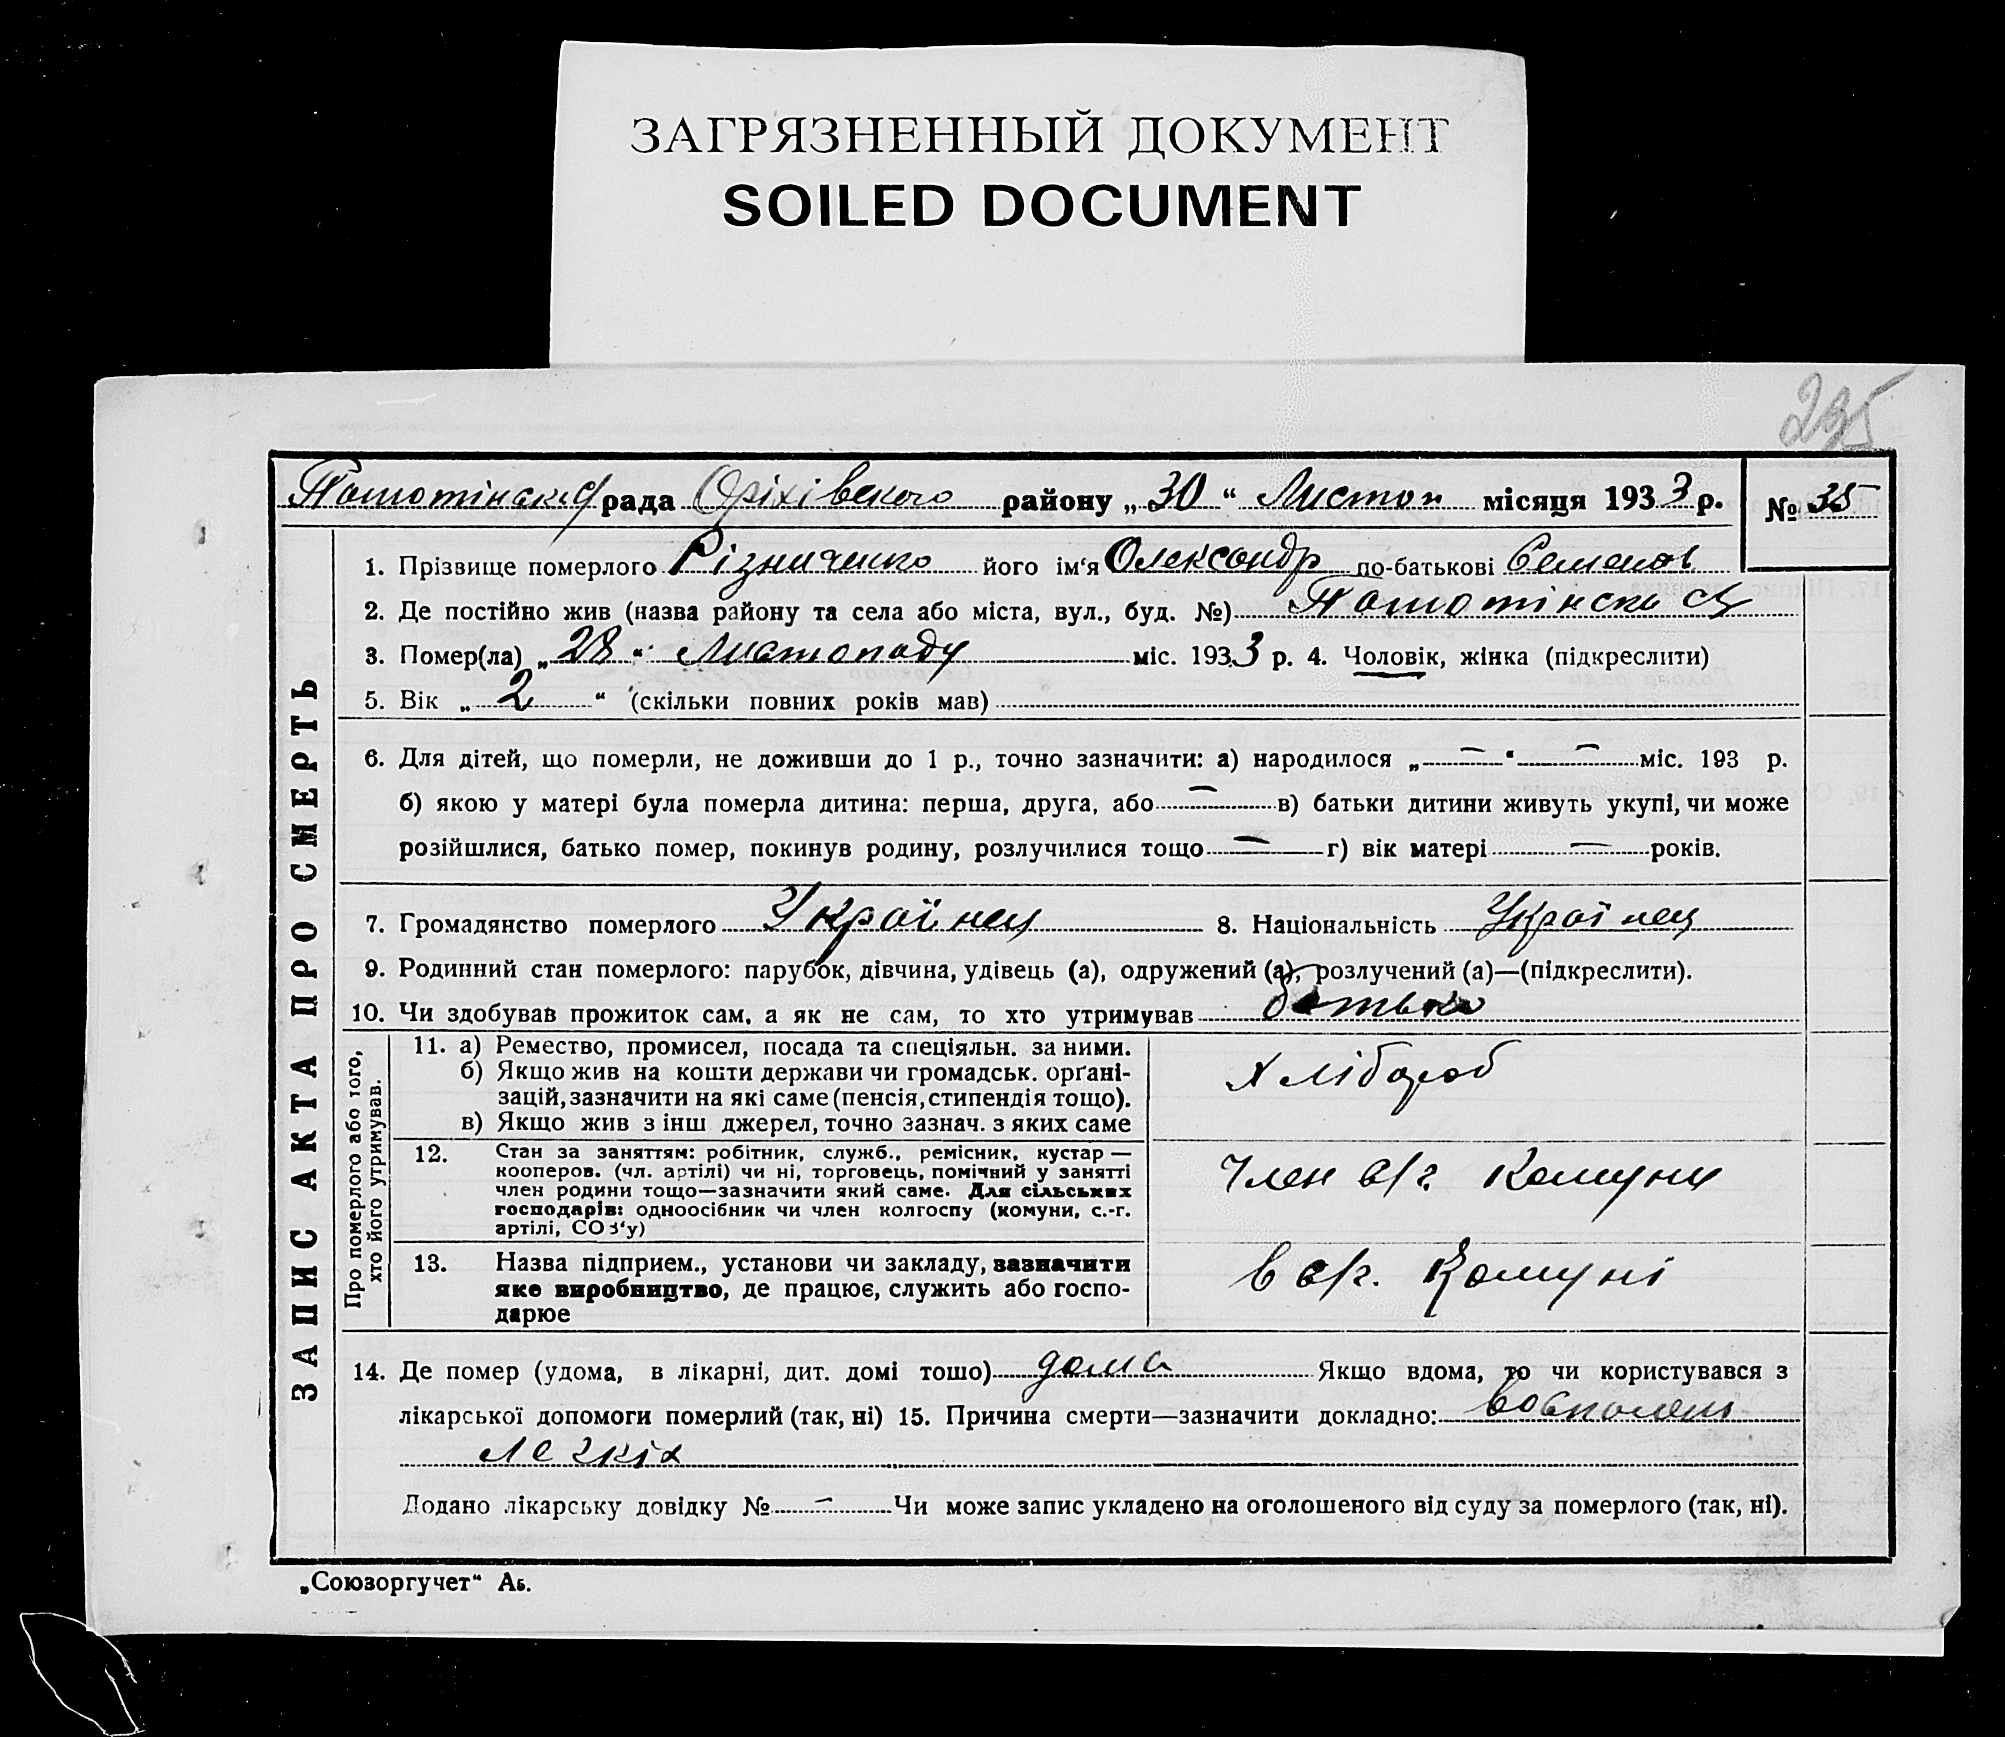 ЗАГРЯЗНЕННЫЙ ДОКУМЕНТ
SOILED DOCUMENT
295
рада Оріхівського району „30“ Листоп місяця 1933 р. № 35
ЗАПИС АКТА ПРО СМЕРТЬ
1. Прізвище померлого Різниченко його ім‘я Олександр по-батькові Семенов
2. Де постійно жив (назва району та села або міста, вул., буд. №)
3. Помер(ла) „28“ Листопаду міс. 1933 р. 4. Чоловік, жінка (підкреслити)
5. Вік „2“ (скільки повних років мав)
6. Для дітей, що померли, не доживши до 1 р., точно зазначити: а) народилося „—“ — міс. 193 р.
б) якою у матері була померла дитина: перша, друга, або — в) батьки дитини живуть укупі, чи може
розійшлися, батько помер, покинув родину, розлучилися тощо — г) вік матері — років.
7. Громадянство померлого Українец 8. Національність Українец
9. Родинний стан померлого: парубок, дівчина, удівець (а), одружений (а), розлучений (а)—(підкреслити).
10. Чи здобував прожиток сам, а як не сам, то хто утримував батько
Про померлого або того,
хто його утримував.
11. а) Ремество, промисел, посада та спеціяльн. за ними.
б) Якщо жив на кошти держави чи громадськ. орґані-
зацій, зазначити на які саме (пенсія, стипендія тощо).
в) Якщо жив з інш джерел, точно зазнач. з яких саме
Хлібороб
12. Стан за заняттям: робітник, служб., ремісник, кустар —
кооперов. (чл. артілі) чи ні, торговець, помічний у занятті
член родини тощо—зазначити який саме. Для сільських
господарів: одноосібник чи член колгоспу (комуни, с.-г.
артілі, СОЗ‘у)
Член с/г Комуни
13. Назва підприєм., установи чи закладу, зазначити
яке виробництво, де працює, служить або госпо-
дарює
в с/г. Комуні
14. Де помер (удома, в лікарні, дит. домі тошо) дома Якщо вдома, то чи користувався з
лікарської допомоги померлий (так, ні) 15. Причина смерти—зазначити докладно:
легкіх
Додано лікарську довідку № — Чи може запис укладено на оголошеного від суду за померлого (так, ні).
„Союзоргучет“ А5.